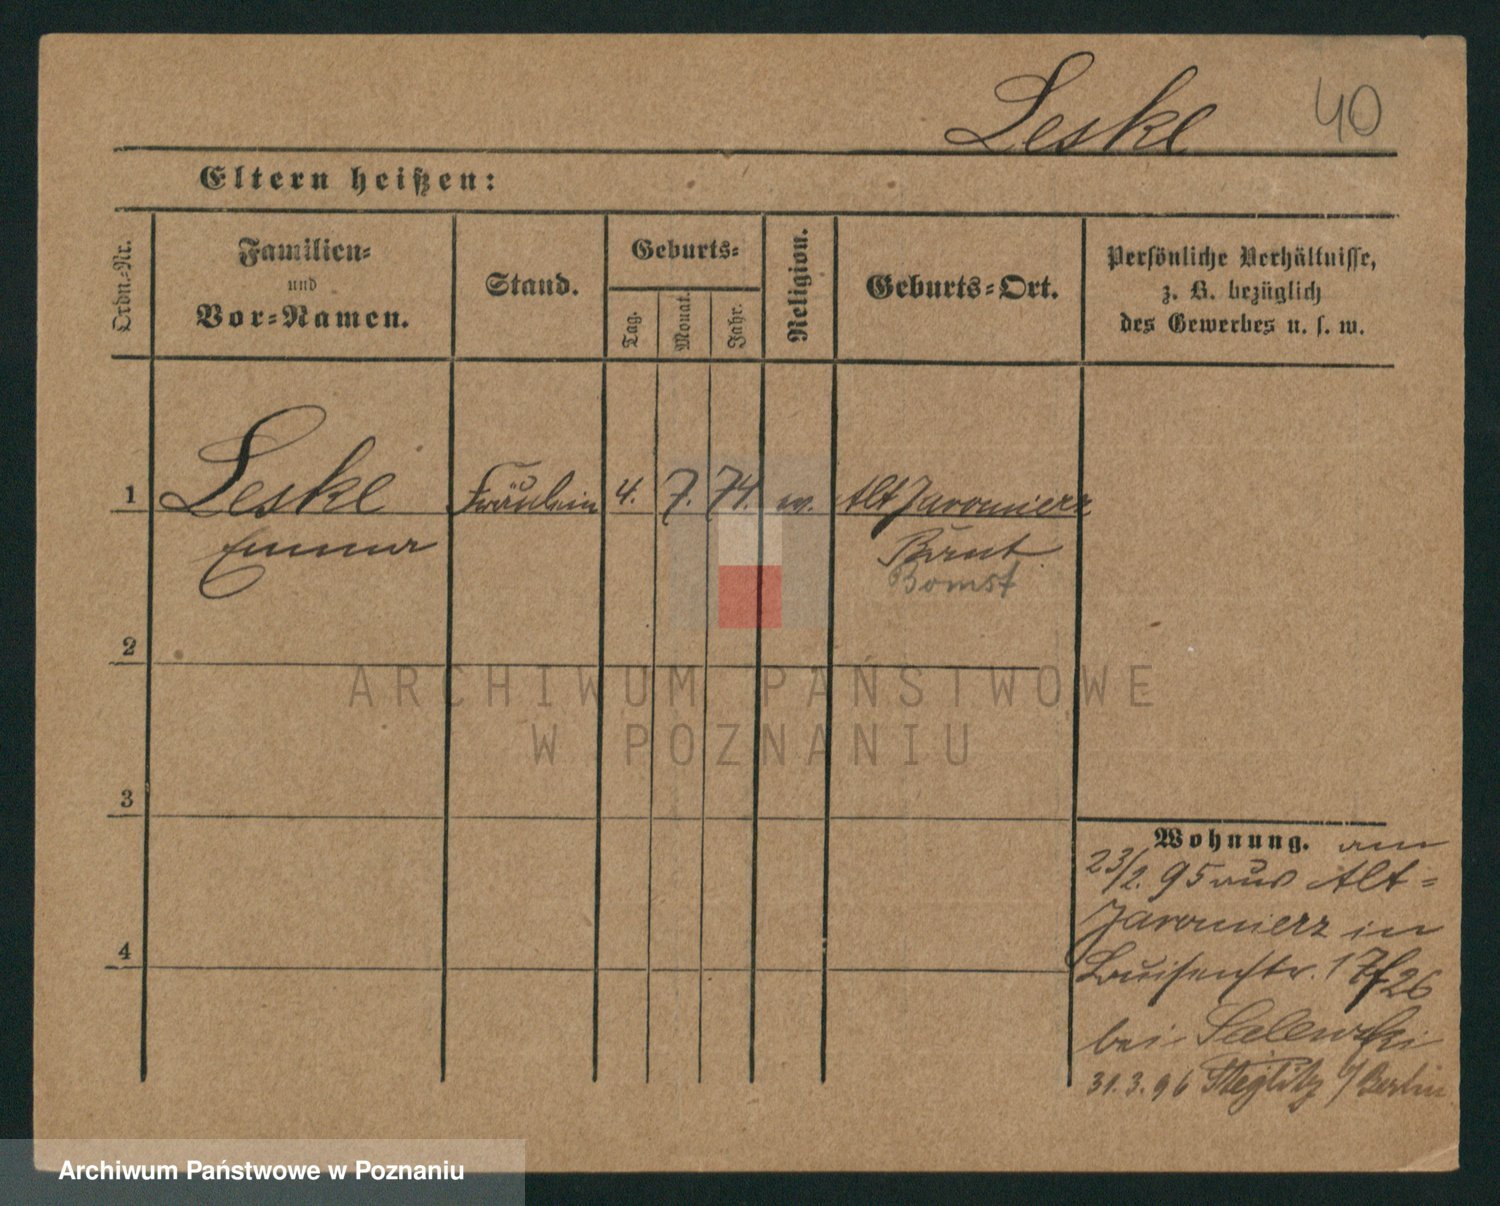 Leske 40
Eltern heißen:
Ordn.-Nr.
Familien-
und
Vor-Namen.
Stand.
Geburts-
Tag.
Monat.
Jahr.
Religion.
Geburts-Ort.
Persönliche Verhältnisse,
z. B. bezüglich
des Gewerbes u. s. w.
1 Leske Fräulein 4. 7. 74. ev. Alt Jaromierz
Emma
Bomst
2
3
4
Wohnung. am
23/2. 95 aus Alt-
Jaromierz in
Louisenstr. 17/26
bei
31.3.96 Steglitz b/ Berlin
ARCHIWUM PAŃSTWOWE
W POZNANIU
Archiwum Państwowe w Poznaniu